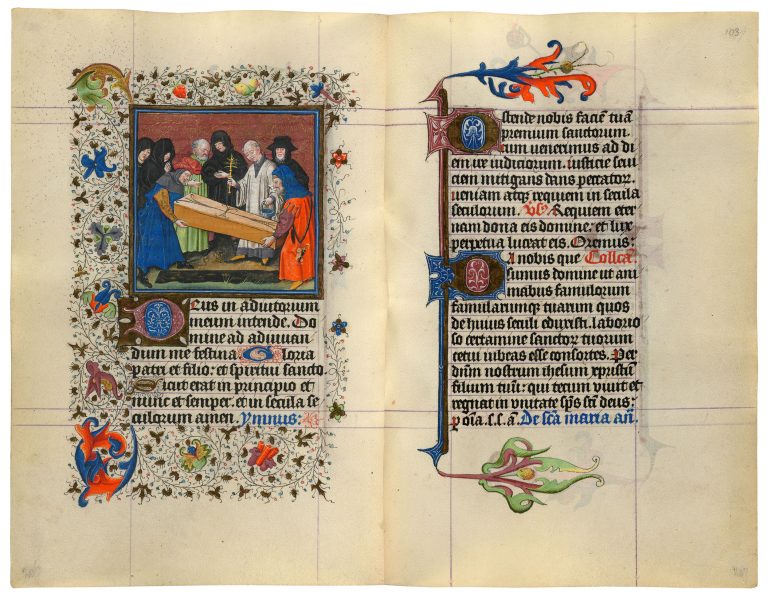 Deus in adiutorium
meum intende. Do
mine ad adiuvan
dum me festina Gloria
patri et filio: et spiritui sancto.
Sicut erat in principio et
nunc et semper. et in secula se
culorum amen. Ymnus:
103
Ostende nobis faciē tuā
premium sanctorum.
cum venerimus ad di
em ire iudiciorum. iusticie seu
tem mitigans dans peccator.
veniam atqʒ requiem in secula
seculorum. Vsꝰ Requiem eter
nam dona eis domine: et lux
perpetua luceat eis. Oremus:
Da nobis que Collcā:
sumus domine ut ani
mabus famulorum
famularumqʒ tuarum quos
de huius seculi eduxisti laborio
so certamine sanctoꝝ tuorum
cetui iubeas esse consortes. Per
dnm nostrum ihesum xpristū
filium tuū: qui tecum vivit et
regnat in unitate spūs scī deus:
p oīa. s. s. a. De scā maria añ.